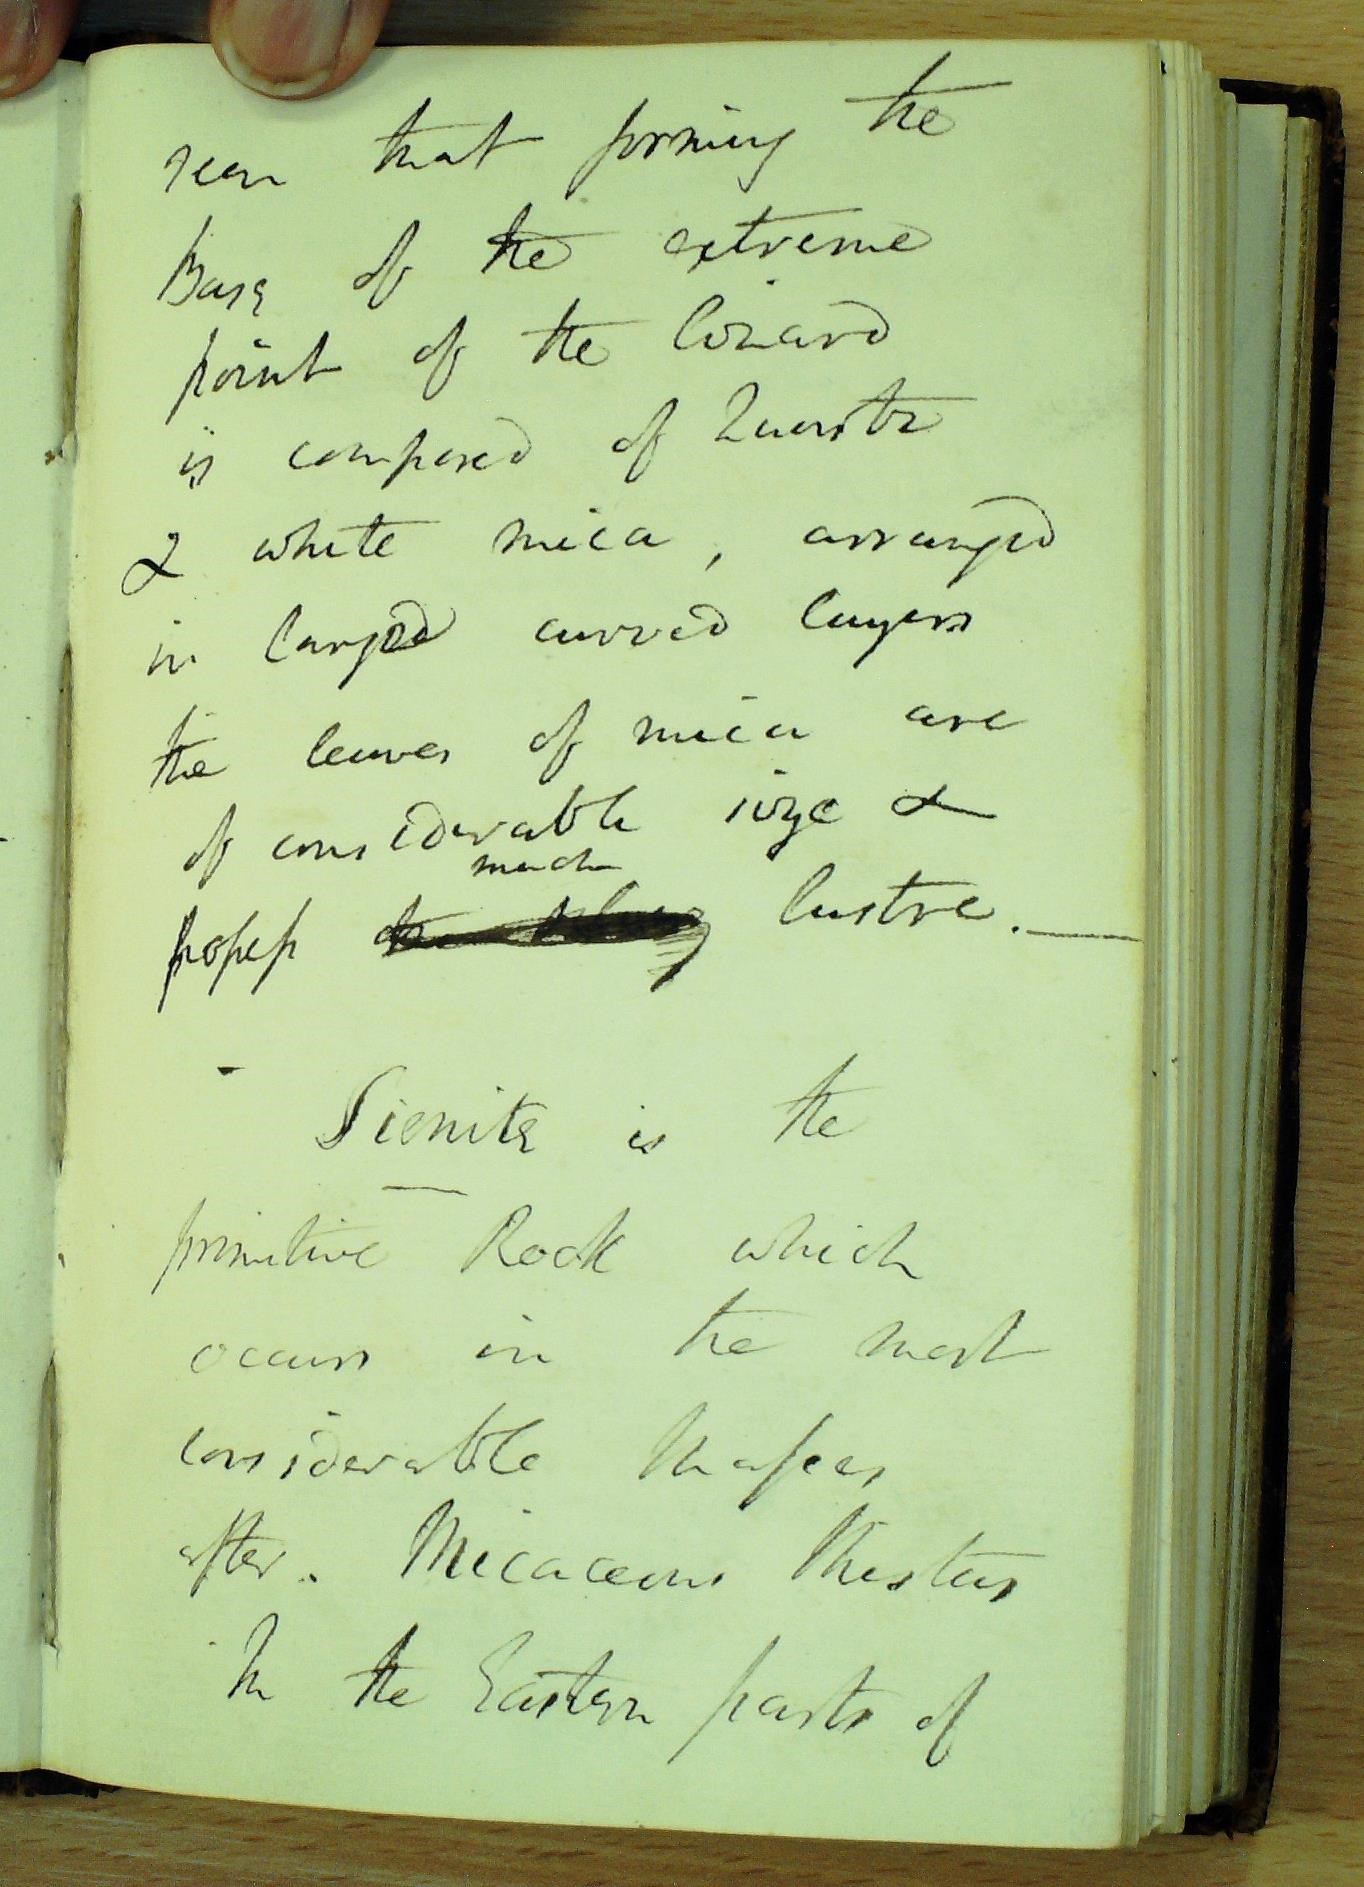 seen that forming the
Base of the extreme
point of the Lizard
is composed of Quartz
& white mica, arranged
in large curved layers
the leaves of mica are
of considerable size &
much
possess lustre. —
Sienite is the
primitive Rock which
occurs in the most
considerable Masses
after. Micaceous Shistus
In the Eastern parts of